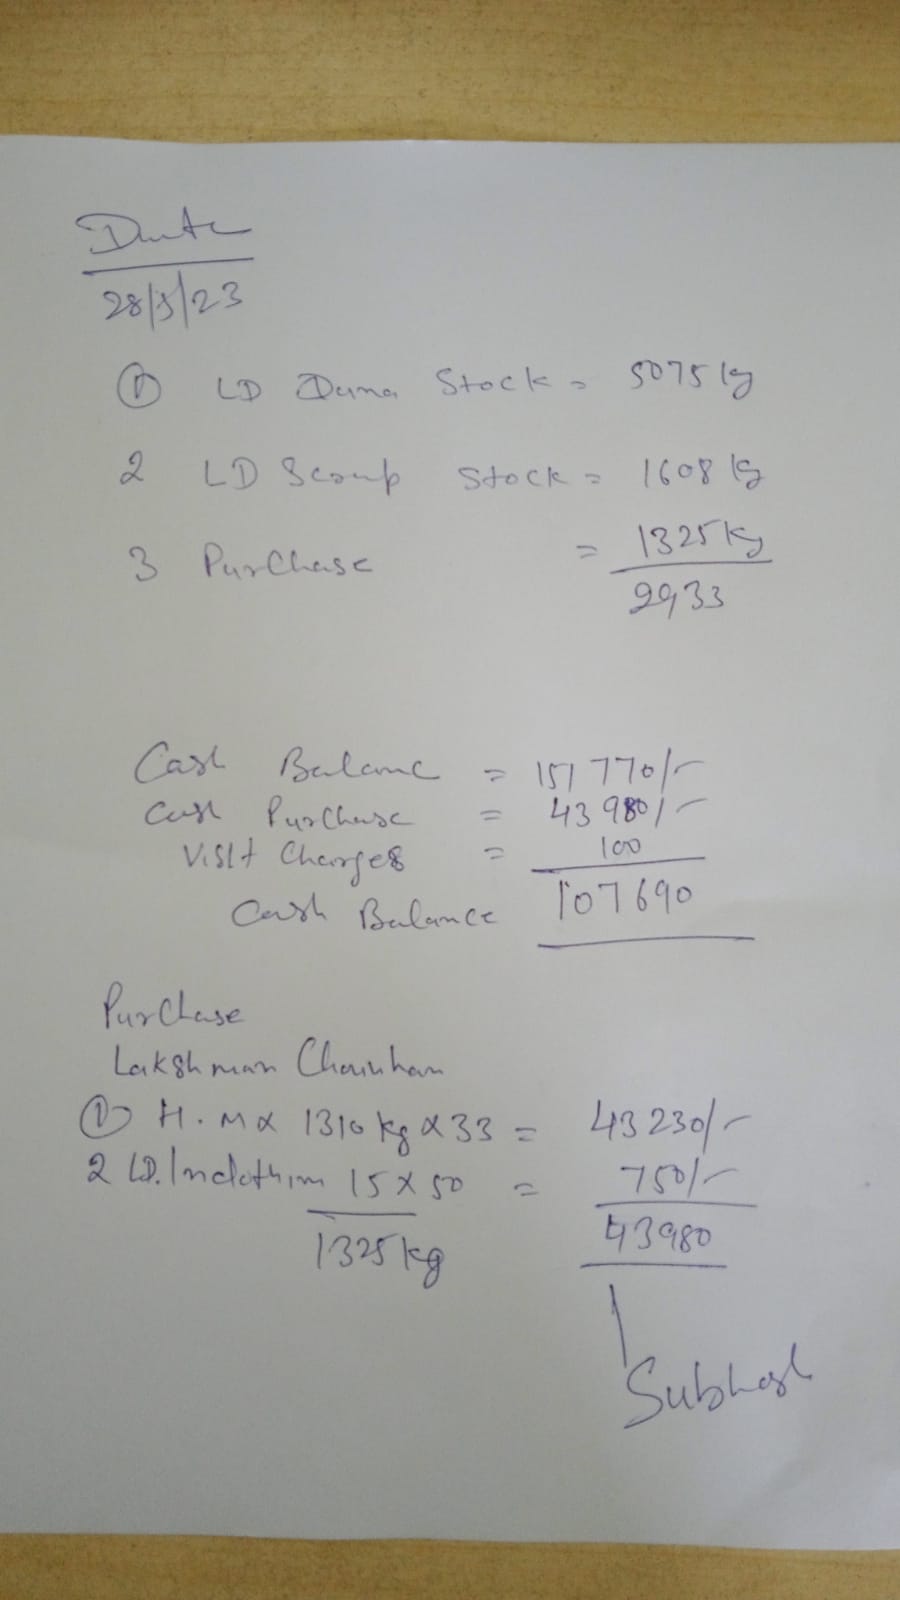 Date
28/5/23
① LD Dana Stock = 5075 kg
2 LD Scrap Stock = 1608 kg
3 Purchase = 1325 kg
2933
Cash Balance = 151770/-
Cash Purchase = 43980/-
Visit Charges = 100
Cash Balance 107690
Purchase
Lakshman Chauhan
① H.M x 1310 kg x 33 = 43230/-
2 LD. 15 x 50 = 750/-
1325 kg 43980
Subhash